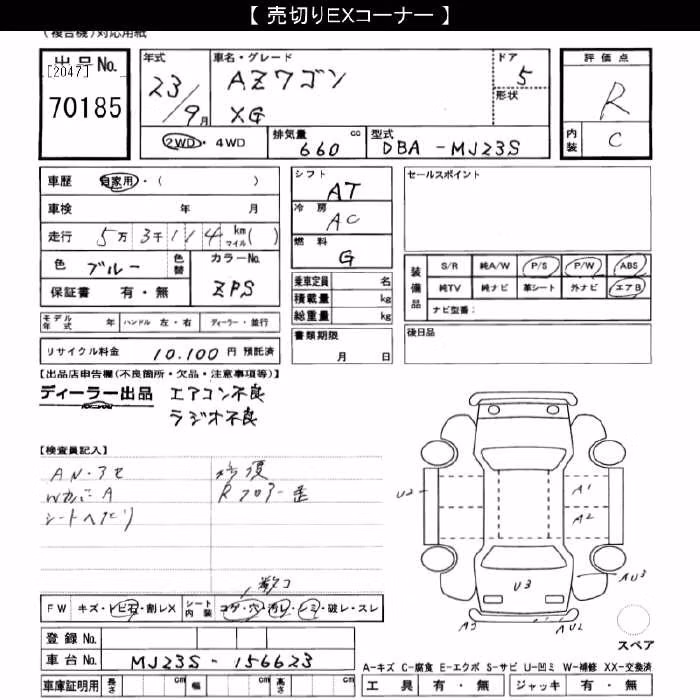 【 売切りEXコーナー 】
(複合機)対応用紙
出品No.
[2047]
70185
年式
23/9月
車名・グレード
AZワゴン
XG
ドア
5
形状
評価点
R
内装
C
2WD・4WD
排気量
660
cc
型式
DBA-MJ23S
車歴 自家用・( )
車検 年 月
走行 5万3千114 km マイル( )
色 ブルー 色替
カラーNo.
ZPS
保証書 有・無
シフト
AT
冷房
AC
燃料
G
乗車定員 名
積載量 kg
総重量 kg
セールスポイント
装備品
S/R 純A/W P/S P/W ABS
純TV 純ナビ 革シート 外ナビ エアB
ナビ型番:
モデル年式 年 ハンドル 左・右 ディーラー・並行
リサイクル料金 10.100 円 預託済
書類期限
月 日
後日品
【出品店申告欄(不良箇所・欠品・注意事項等)】
ディーラー出品 エアコン不良
ラジオ不良
【検査員記入】
修復
Rフロアー歪
シートヘタリ
U2
A1
A2
U3
AU3
A3
AU2
スペア
FW キズ・トビ石・割レX シート内装 コゲ・穴・汚レ・シミ・破レ・スレ
登録No.
車台No. MJ23S-156623
車庫証明用 長さ cm 幅 cm 高さ cm
A-キズ C-腐食 E-エクボ S-サビ U-凹ミ W-補修 XX-交換済
工具 有・無 ジャッキ 有・無